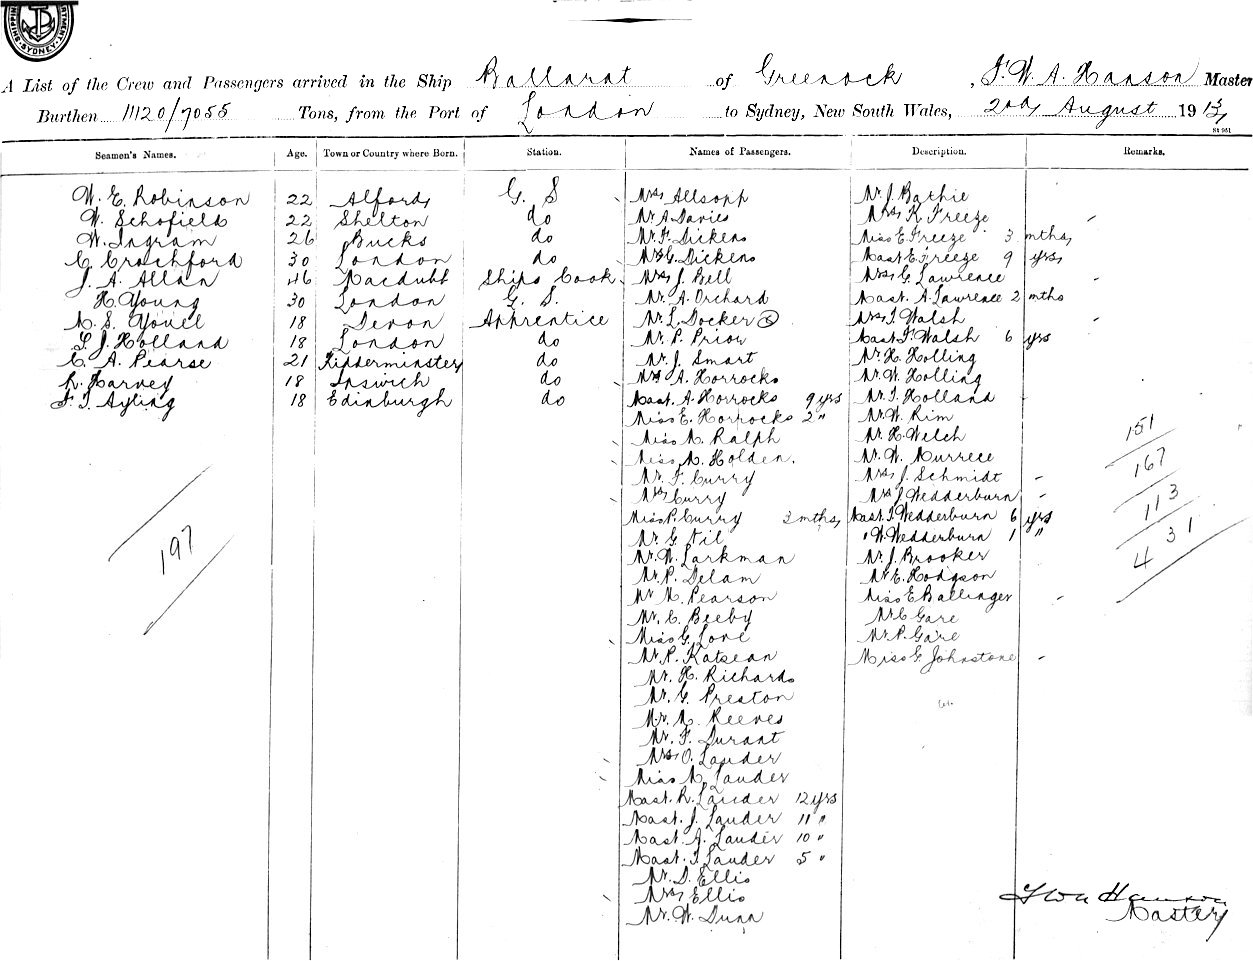 SHIPPING DEPARTMENT SYDNEY
A List of the Crew and Passengers arrived in the Ship Ballarat of Greenock, F. W. A. Hanson Master
Burthen 11120/7055 Tons, from the Port of London to Sydney, New South Wales, 2nd August 1913
St 961
Seamen's Names. Age. Town or Country where Born. Station. Names of Passengers. Description. Remarks.
W. E. Robinson 22 Alford G. S Mrs Allsopp Mr J. Bathie
W. Schofield 22 Shelton do Mr A. Davies Mrs K Freeze
W. Ingram 26 Bucks do Mr F. Dickens Miss E Freeze 3 mths
C. Crochford 30 London do Mrs G. Dickens Mast E. Freeze 9 yrs
J. A. Allan 46 Macduff Ships Cook Mrs J. Bell Mrs G. Lawrence
H. Young 30 London G. S. Mr. A. Orchard Mast. A. Lawrence 2 mths
M. S. Youel 18 Devon Apprentice Mr L. Docker Mrs T. Walsh
S. J. Holland 18 London do Mr. P. Prior Mast F. Walsh 6 yrs
C. A. Pearse 21 Kidderminster do Mr. J. Smart Mr. H. Holling
R. Harvey 18 Ipswich do Mrs A. Horrocks Mr. W. Holling
F. T. Ayling 18 Edinburgh do Mast. A. Horrocks 9 yrs Mr. T. Holland
Miss E. Horrocks 2 " Mr. W. Rim
Miss M. Ralph Mr. H. Welch 151
Miss M. Holden. Mr. W. 167
Mr. F. Curry Mrs J. Schmidt
Mrs Curry Mrs J Wedderburn 113
Miss P. Curry 3 mths Mast. T. Wedderburn 6 yrs
Mr. G. Nil " W. Wedderburn 1 " 431
197
Mr. W. Larkman Mr. J. Brooker
Mr. P. Delam Mr E. Hodgson
Mr M. Pearson Miss E Ballinger
Mr. C. Beeby Mr C Gare
Miss G. Love Mr. P. Gare
Mr. P. Katsean Miss G. Johnstone
Mr. H. Richards
Mr. G. Preston
Mr. M. Reeves
Mr. F. Durant
Mrs O. Lauder
Miss M. Lauder
Mast. R. Lauder 12 yrs
Mast. J. Lauder 11 "
Mast. A. Lauder 10 "
Mast. T. Lauder 5 "
Mr. D. Ellis
Mrs Ellis
Mr. W. Dunn
F W A Hanson
Master